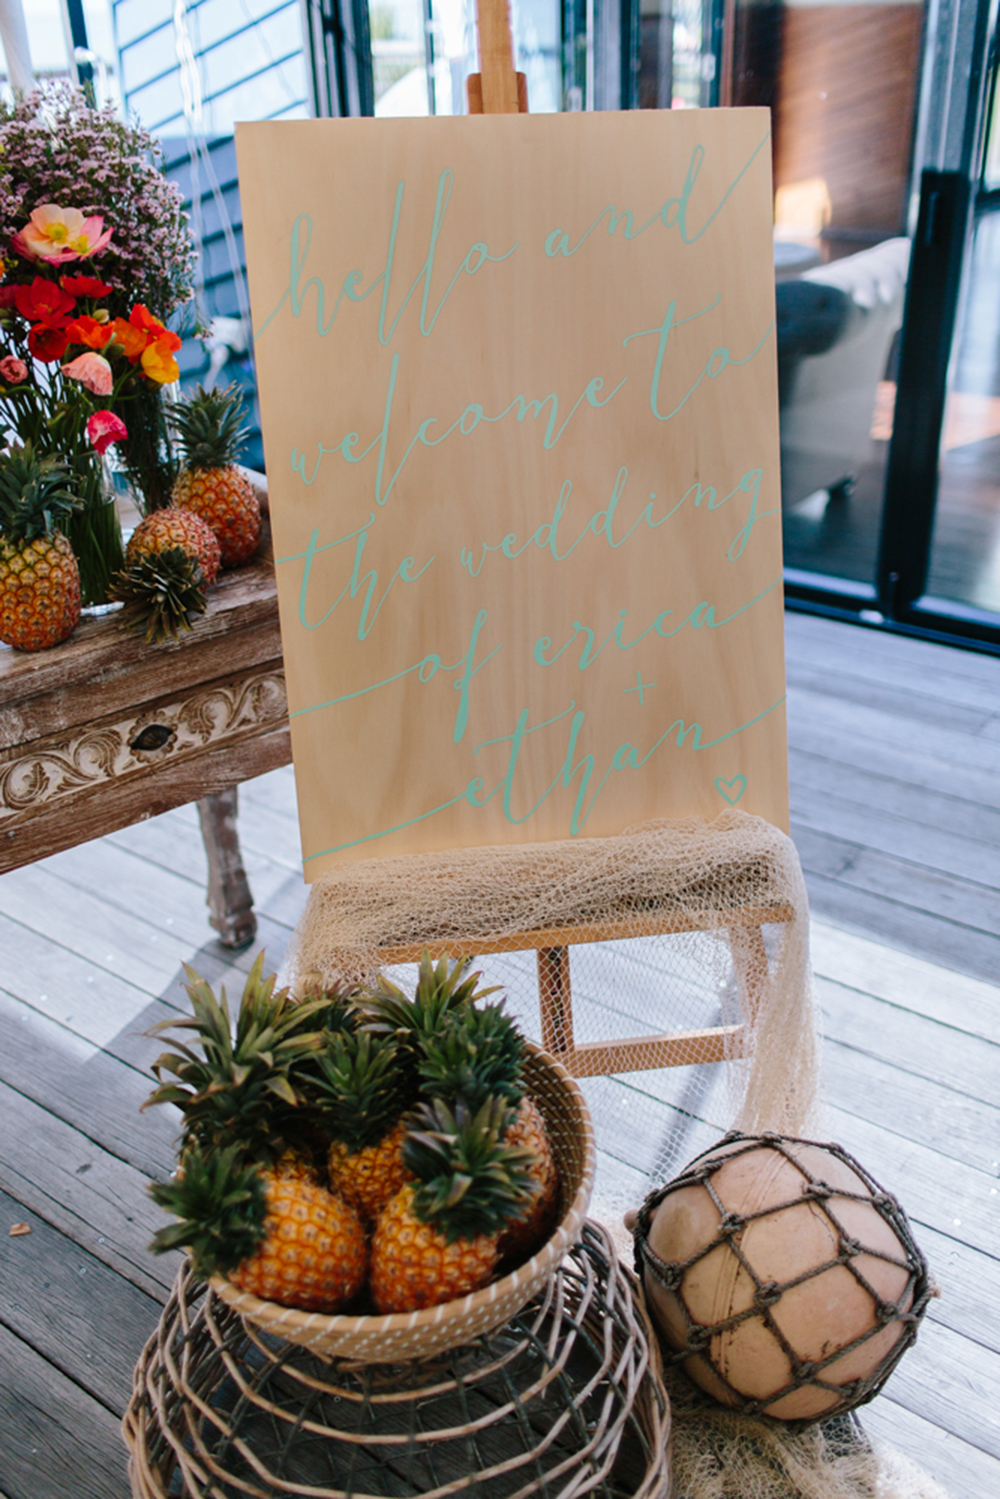 hello and
welcome to
the wedding
of erica
+
ethan